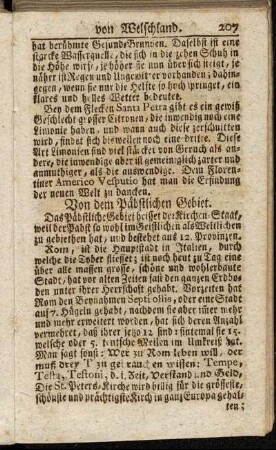 von Welschland. 207
hat berühmte Gesund-Brunnen. Daselbst ist eine
starcke Wasserquelle, die sich in die zehen Schuh in
die Höhe wirft, je höher sie nun über sich steigt, je
näher ist Regen und Ungewitter vorhanden; dahin-
gegen, wenn sie nur die Helfte so hoch springet, ein
klares und helles Wetter bedeutet.
Bey dem Flecken Santa Petra gibt es ein gewiß
Geschlecht grosser Citronen, die inwendig noch eine
Limonie haben, und wann auch diese zerschnitten
wird, findet sich bisweilen noch eine dritte. Diese
Art Limonien sind viel stärcker von Geruch als an-
dere, die inwendige aber ist gemeiniglich zarter und
anmuthiger, als die auswendige. Dem Floren-
tiner Americo Vesputio hat man die Erfindung
der neuen Welt zu dancken.
Von dem Päbstlichen Gebiet.
Das Päbstliche Gebiet heisset der Kirchen-Staat,
weil der Pabst so wohl im Geistlichen als Weltlichen
zu gebiethen hat, und bestehet aus 12. Provinzen.
Rom, ist die Hauptstadt in Italien, durch
welche die Tober fliesset; ist noch heut zu Tag eine
über alle massen grosse, schöne und wohlerbaute
Stadt; hat vor alten Zeiten fast den ganzen Erdbo-
den unter ihrer Herrschaft gehabt. Vorzeiten hat
Rom den Beynahmen Septicollis, oder eine Stadt
auf 7. Hügeln gehabt, nachdem sie aber immer mehr
und mehr erweitert worden, hat sich deren Anzahl
vermehret, daß ihrer jetzo 12 sind: sintemal sie 15.
welsche oder 5. teutsche Meilen im Umkreiß hat.
Man sagt sonst: Wer zu Rom leben will, der
muß drey T zu gebrauchen wissen: Tempe,
Testa, Testoni, d. i. Zeit, Verstand und Geld,
Die St. Peters-Kirche wird billig für die grösseste,
schönste und prächtigste Kirch in ganz Europa gehal-
ten;